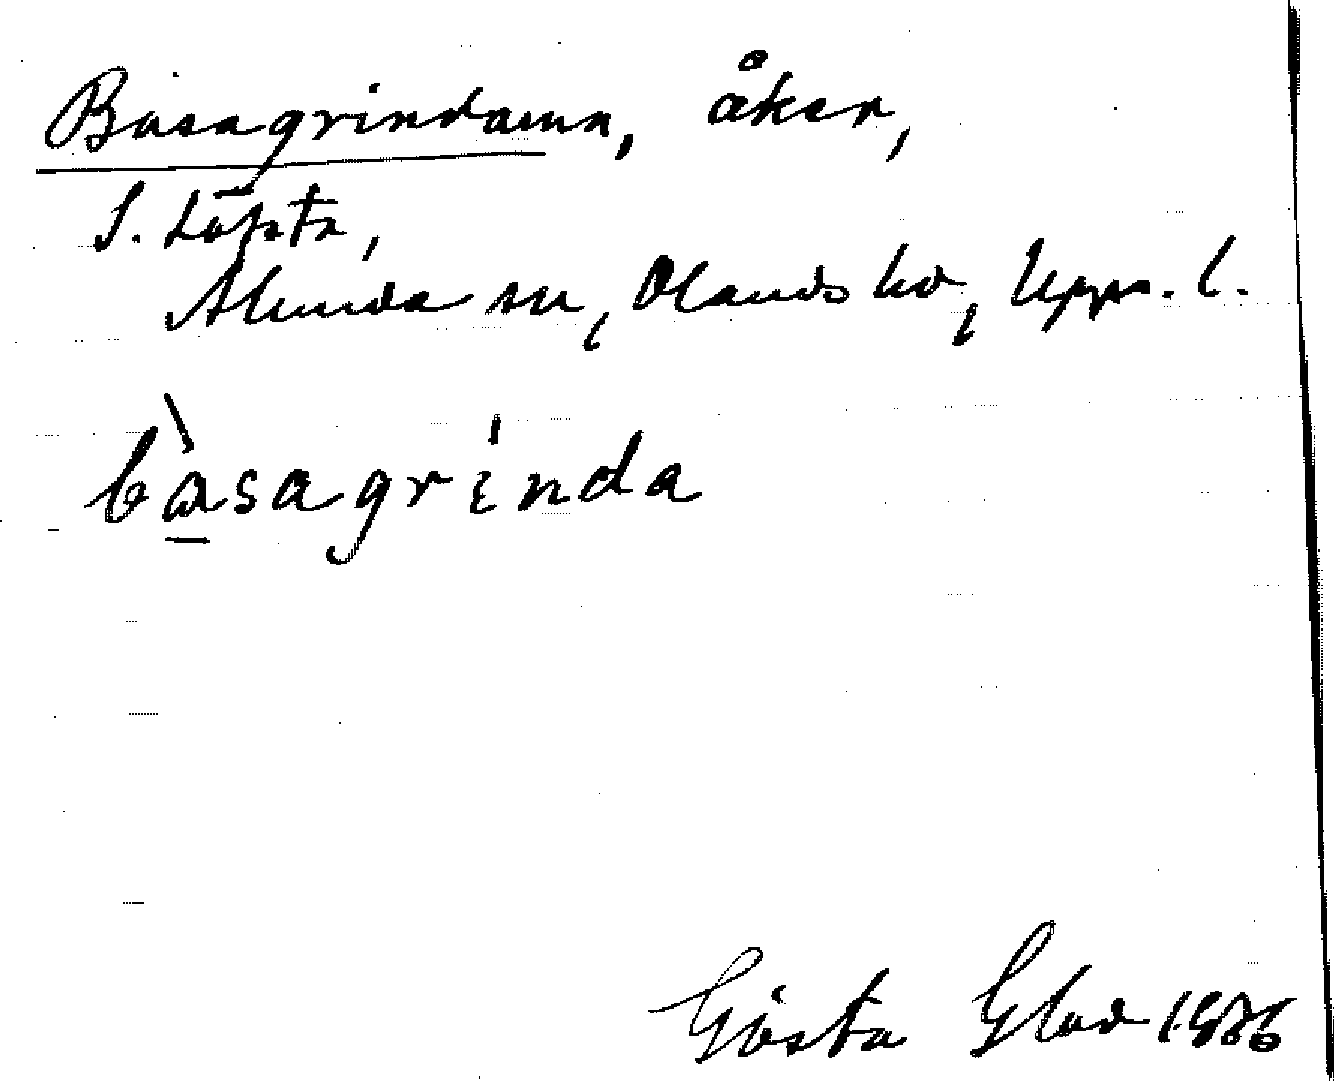 Basagrindarna, åker,
S. Löpsta,
Alunda sn, Olands hd, Upps. l.
bàsagrinda
Gösta Glad 1936